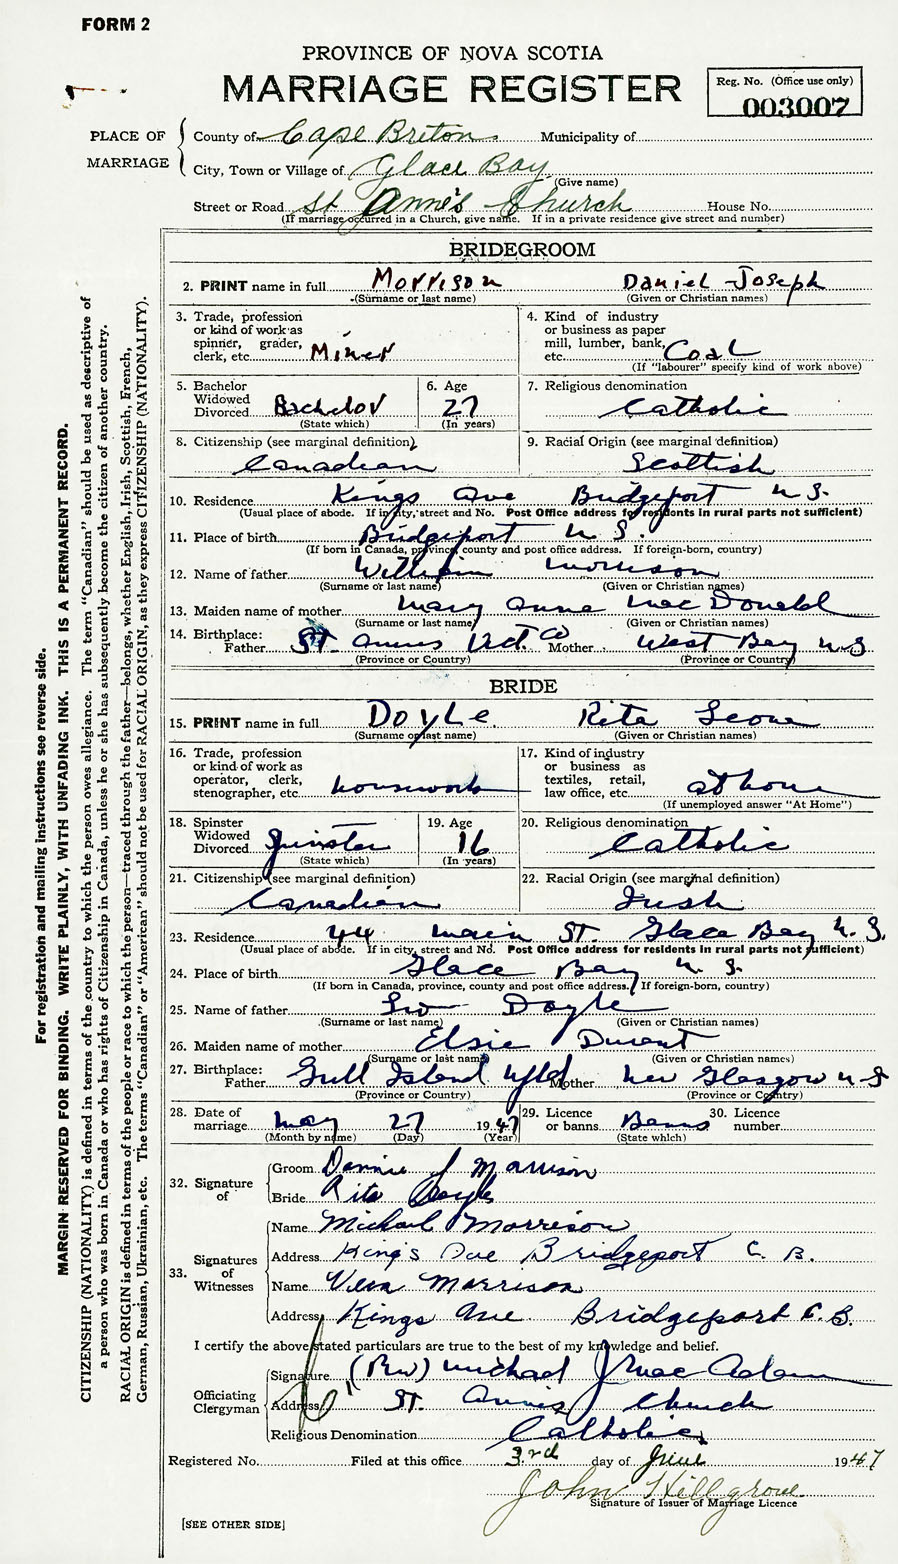 FORM 2
PROVINCE OF NOVA SCOTIA
MARRIAGE REGISTER
Reg. No. (Office use only)
003007
PLACE OF MARRIAGE
County of Cape Breton Municipality of
City, Town or Village of Glace Bay
(Give name)
Street or Road St Anne's Church House No.
(If marriage occurred in a Church, give name. If in a private residence give street and number)
BRIDEGROOM
2. PRINT name in full Morrison Daniel Joseph
(Surname or last name) (Given or Christian names)
3. Trade, profession or kind of work as spinner, grader, clerk, etc. Miner
4. Kind of industry or business as paper mill, lumber, bank, etc. Coal
(If "labourer" specify kind of work above)
5. Bachelor Widowed Divorced Bachelor
(State which)
6. Age 27
(In years)
7. Religious denomination
Catholic
8. Citizenship (see marginal definition)
Canadian
9. Racial Origin (see marginal definition)
Scottish
10. Residence Kings Ave Bridgeport N S.
(Usual place of abode. If in city, street and No. Post Office address for residents in rural parts not sufficient)
11. Place of birth Bridgeport N S.
(If born in Canada, province, county and post office address. If foreign-born, country)
12. Name of father William Morrison
(Surname or last name) (Given or Christian names)
13. Maiden name of mother Mary Anne MacDonald
(Surname or last name) (Given or Christian names)
14. Birthplace: Father St. Anns Vict. Co Mother West Bay N S
(Province or Country) (Province or Country)
BRIDE
15. PRINT name in full Doyle Rita Leone
(Surname or last name) (Given or Christian names)
16. Trade, profession or kind of work as operator, clerk, stenographer, etc. housework
17. Kind of industry or business as textiles, retail, law office, etc. at home
(If unemployed answer "At Home")
18. Spinster Widowed Divorced Spinster
(State which)
19. Age 16
(In years)
20. Religious denomination
Catholic
21. Citizenship (see marginal definition)
Canadian
22. Racial Origin (see marginal definition)
Irish
23. Residence 44 Main St. Glace Bay N. S.
(Usual place of abode. If in city, street and No. Post Office address for residents in rural parts not sufficient)
24. Place of birth Glace Bay N. S.
(If born in Canada, province, county and post office address. If foreign-born, country)
25. Name of father Doyle
(Surname or last name) (Given or Christian names)
26. Maiden name of mother Elsie Durant
(Surname or last name) (Given or Christian names)
27. Birthplace: Father Gull Island Nfld Mother New Glasgow N S
(Province or Country) (Province or Country)
28. Date of marriage May 27 1947
(Month by name) (Day) (Year)
29. Licence or banns Banns
(State which)
30. Licence number
32. Signature of
Groom Dannie J Morrison
Bride Rita Doyle
33. Signatures of Witnesses
Name Michael Morrison
Address King's Ave Bridgeport C. B.
Name Vera Morrison
Address Kings Ave Bridgeport C. B.
I certify the above stated particulars are true to the best of my knowledge and belief.
Officiating Clergyman
Signature (Rev) Michael J MacAdam
Address St. Anns Church
Religious Denomination Catholic
Registered No. Filed at this office 3rd day of June 1947
John Hillgrove
Signature of Issuer of Marriage Licence
[SEE OTHER SIDE]
For registration and mailing instructions see reverse side.
MARGIN RESERVED FOR BINDING. WRITE PLAINLY, WITH UNFADING INK. THIS IS A PERMANENT RECORD.
CITIZENSHIP (NATIONALITY) is defined in terms of the country to which the person owes allegiance. The term "Canadian" should be used as descriptive of
a person who was born in Canada or who has rights of Citizenship in Canada, unless he or she has subsequently become the citizen of another country.
RACIAL ORIGIN is defined in terms of the people or race to which the person—traced through the father—belongs, whether English, Irish, Scottish, French,
German, Russian, Ukrainian, etc. The terms "Canadian" or "American" should not be used for RACIAL ORIGIN, as they express CITIZENSHIP (NATIONALITY).